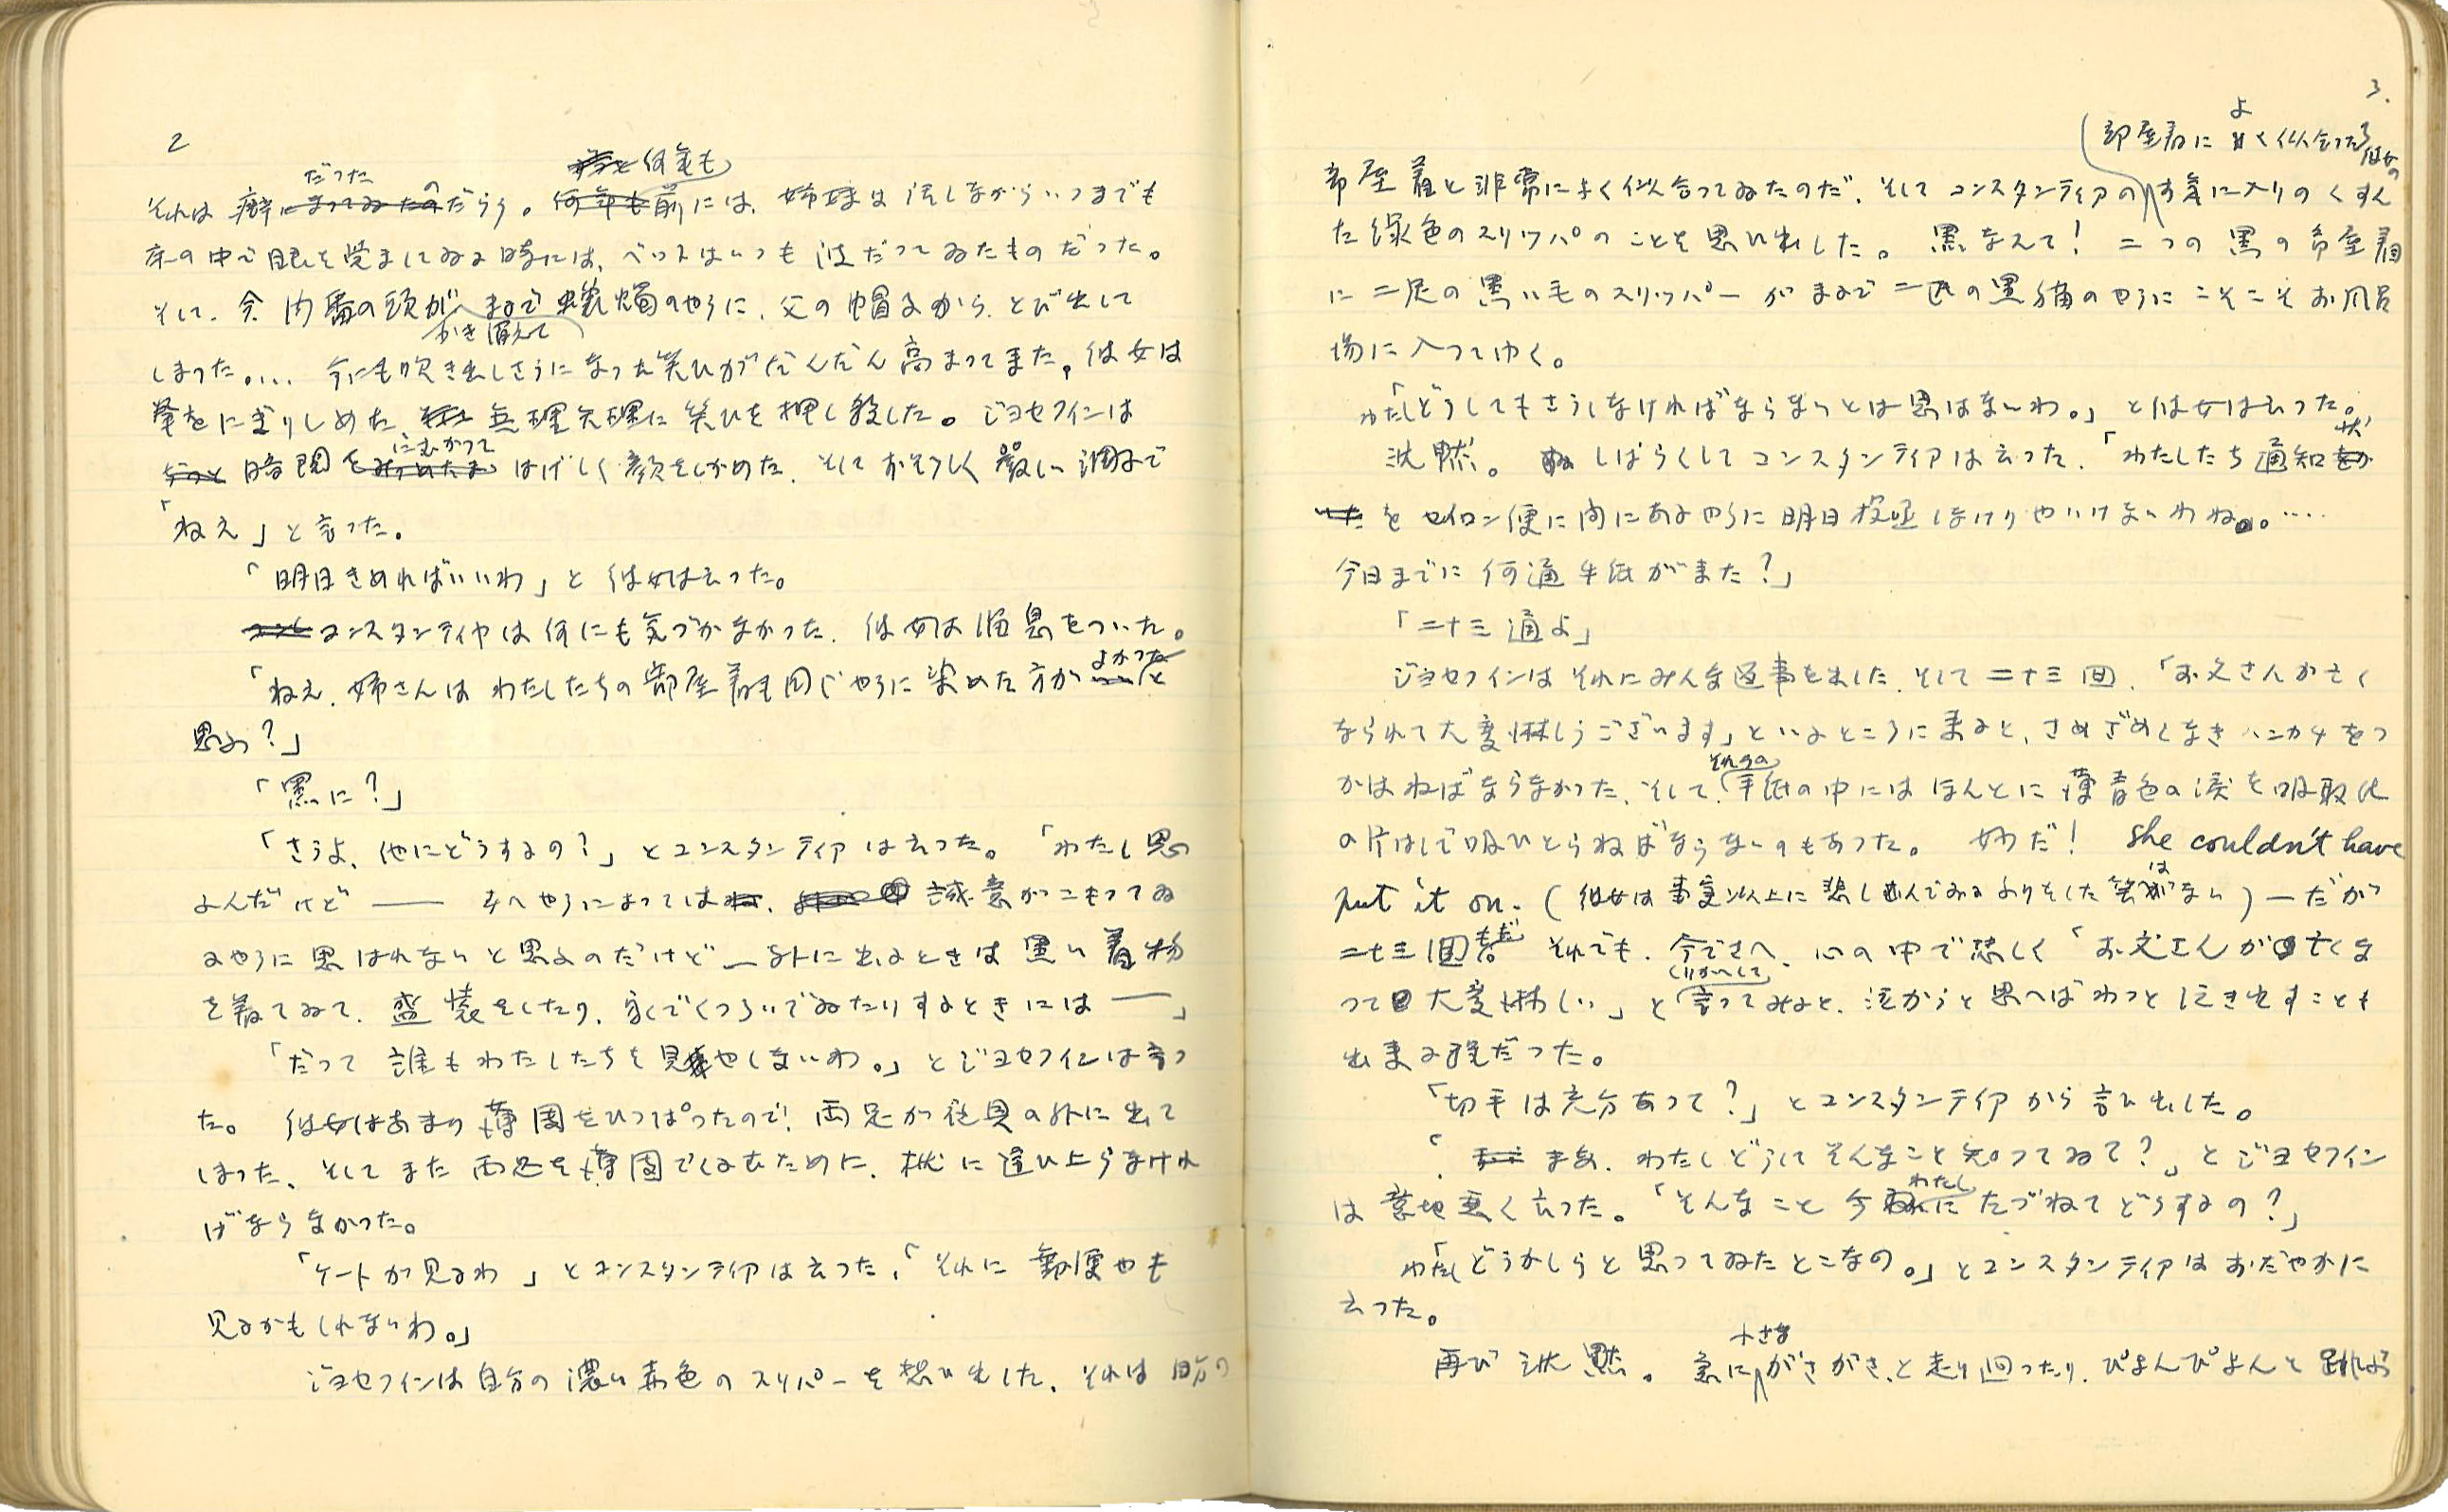 2
だつた の
何年も
それは癖にまつてゐたのだらう。何年も前には、姉妹は話しながらいつまでも
床の中で眼を覚ましてゐる時には、ベットはいつも波だつてゐたものだつた。
そして、今、門番の頭が、まるで蠟燭のやうに、父の帽子から、とび出して
かき消えて
しまつた。... 今にも吹き出しさうになつた笑ひがだんだん高まつてきた。彼女は
拳をにぎりしめた、無理矢理に笑ひを押し殺した。ジヨセフインは
にむかつて
ぢつと 暗闇をみつめたまゝ はげしく顔をしかめた、そしておそろしく厳しい調子で
「ねえ」と言つた。
「明日きめればいいわ」と彼女は云つた。
コンスタンテイヤは何にも気づかなかつた、彼女は溜息をついた。
よかつた
「ねえ、姉さんはわたしたちの部屋着も同じやうに染めた方が と
思ふ?」
「黒に?」
「さうよ、他にどうするの?」とコンスタンテイアは云つた。「わたし思
ふんだけど—— 考へやうによつては、誠意がこもつてゐ
るやうに思はれないと思ふのだけど—外に出るときは黒い着物
を着てゐて、盛装をしたり、家でくつろいでゐたりするときには——」
「だつて誰もわたしたちを見やしないわ。」とジヨセフインは言つ
た。 彼女はあまり蒲団をひつぱつたので、両足が寝具の外に出て
しまつた、そしてまた両足を蒲団でくるむために、枕に這ひ上らなけれ
ばならなかつた。
「ケートが見るわ」とコンスタンテイアは云つた、「それに郵便やも
見るかもしれないわ。」
ジヨセフインは自分の濃い赤色のスリパーを想ひ出した、それは自分の
3.
よ
部屋着によく似合つた 彼女の
部屋着と非常によく似合つてゐたのだ、そしてコンスタンテイアのお気に入りのくすん
だ緑色のスリツパのことを思ひ出した。 黒なんて! 二つの黒の部屋着
に二足の黒い毛のスリツパーがまるで二匹の黒猫のやうにこそこそお風呂
場に入つてゆく。
「わたしどうしてもさうしなければならないとは思はないわ。」と彼女は云つた。
状
沈黙。 しばらくしてコンスタンテイアは云つた、「わたしたち通知
をセイロン便に間にあふやうに明日投函しなけりやいけないわね。....
今日までに何通手紙がきた?」
「二十三通よ」
ジヨセフインはそれにみんな返事を出した、そして二十三回、「お父さんが亡く
なられて大変淋しうございます」といふところに来ると、さめざめとなきハンカチをつ
それらの
かはねばならなかつた、そして、手紙の中にはほんとに薄青色の涙を吸取紙
の片はしで吸ひとらねばならないのもあつた。 妙だ! She couldn't have
は
put it on. (彼女は事実以上に悲しんでゐるふりをした筈がない)—だが
も
二十三回 それでも、今でさへ、心の中で悲しく「お父さんが亡くな
くりかへして
つて大変淋しい」と言つてみると、泣かうと思へばわつと泣き出すことも
出来る程だつた。
「切手は充分あつて?」とコンスタンテイアから言ひ出した。
「まあ、わたしどうしてそんなこと知つてゐて?」とジヨセフイン
わたし
は意地悪く云つた。「そんなこと今 にたづねてどうするの?」
「わたしどうかしらと思つてゐたとこなの。」とコンスタンテイアはおだやかに
云つた。
小さな
再び沈黙。 急にがさがさと走り回つたり、ぴよんぴよんと跳ぶ